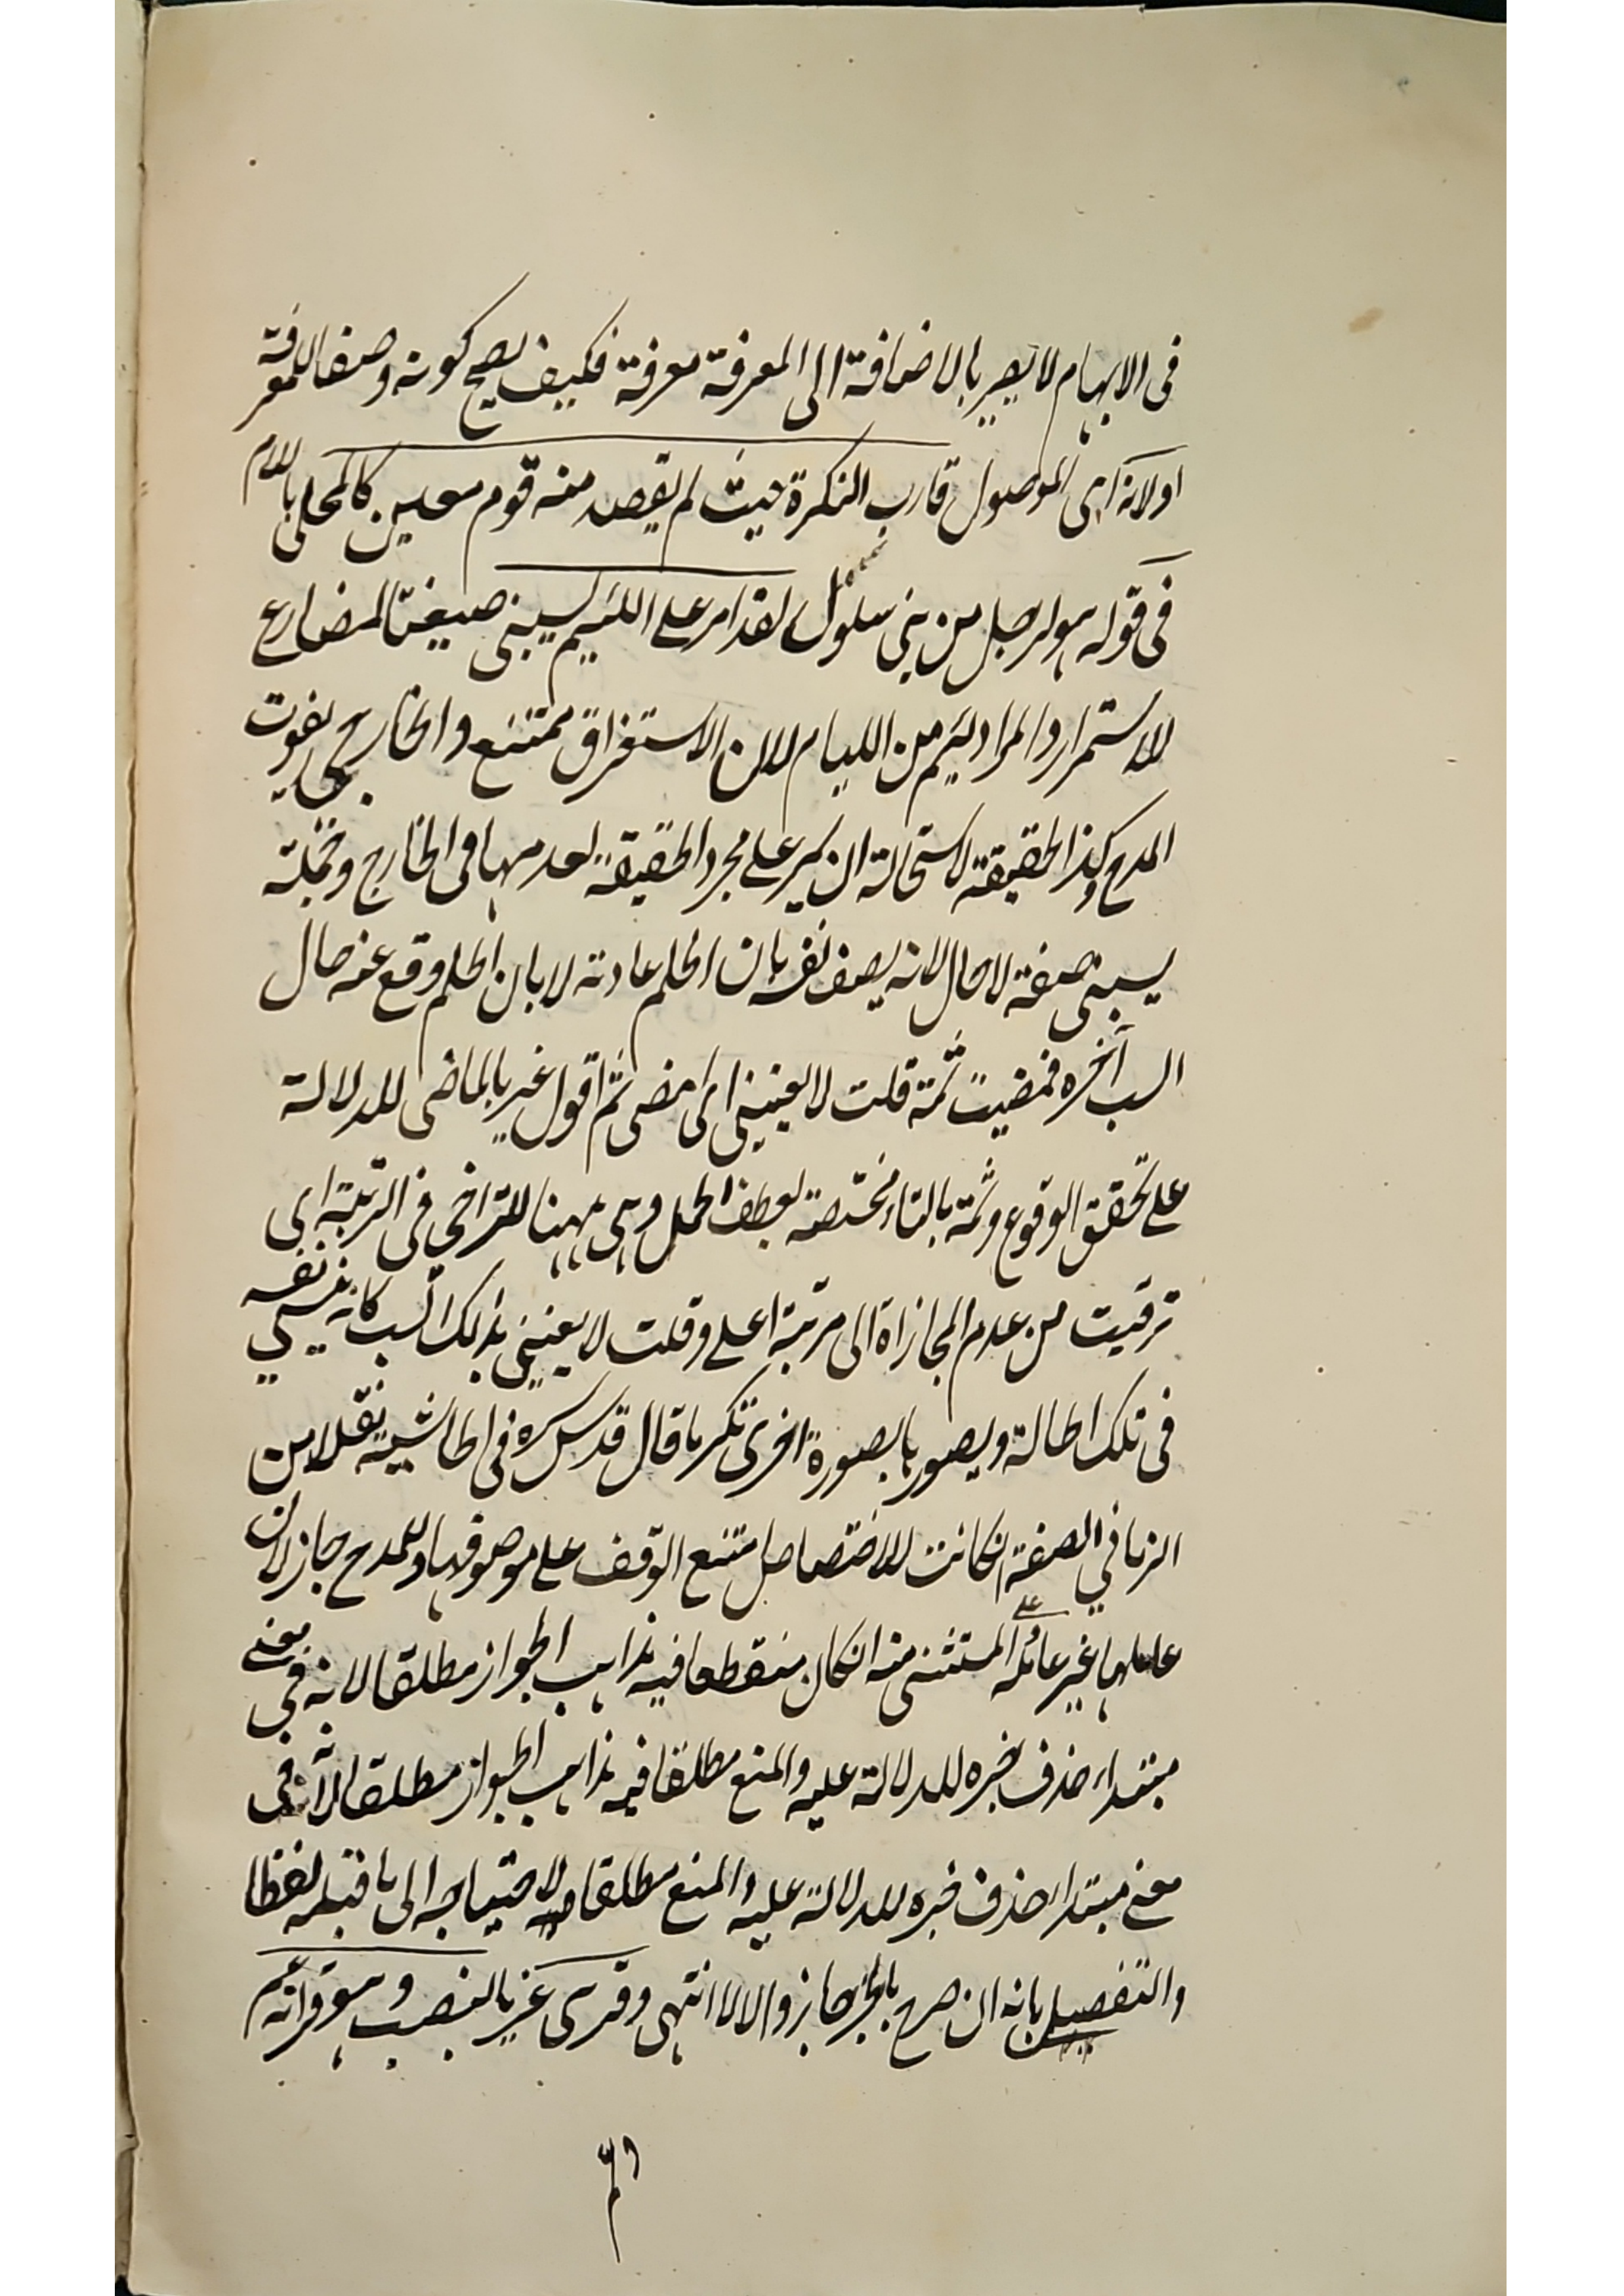 فى الابهام لا يصير بالاضافة الى المعرفة معرفة فكيف يصح كونه وصفا للمعرفة
او لانه اى الموصول قارب النكرة حيث لم يقصد منه قوم معين كالمحلى باللام
فى قوله هو لرجل من بنى سلول لقد امر على اللئيم يسبنى صيغة المضارع
للاستمرار والمراد لئيم من اللئام لا لان الاستغراق ممتنع والخارجى يفوت
المدح وكذا الحقيقة لاستحالة ان يمر على مجرد الحقيقة لعدمها فى الخارج وجملة
يسبنى صفة لا حال لانه يصف نفسه بان الحلم عادته لا بان الحلم وقع عنه حال
السب آخره فمضيت ثمة قلت لا يعنينى اى امضى ثم اقول عبر بالماضى للدلالة
على تحقق الوقوع وثمة بالتاء مختصة بعطف الجمل وهى ههنا للتراخى فى الرتبة اى
ترقيت من عدم المجازاة الى مرتبة اعلى وقلت لا يعنينى بذلك السب كانه ينسى نفسه
فى تلك الحالة ويصورها بصورة اخرى تكرما قال قدس سره فى الحاشية نقلا من
الصفة انكانت للاختصاص امتنع الوقف على موصوفها وللمدح جاز لان
عاملها غير عامله المستثنى منه انكان منقطعا فيه مذاهب الجواز مطلقا لانه فى معنى
مبتداء حذف خبره للدلالة عليه والمنع مطلقا فيه مذاهب الجواز مطلقا لانه فى
معنى مبتداء حذف خبره للدلالة عليه والمنع مطلقا لاحتياجه الى ما قبله لفظا
والتفصيل بانه ان صرح بالخبر جاز والا لا انتهى وقرى غير بالنصب وهو قرائة